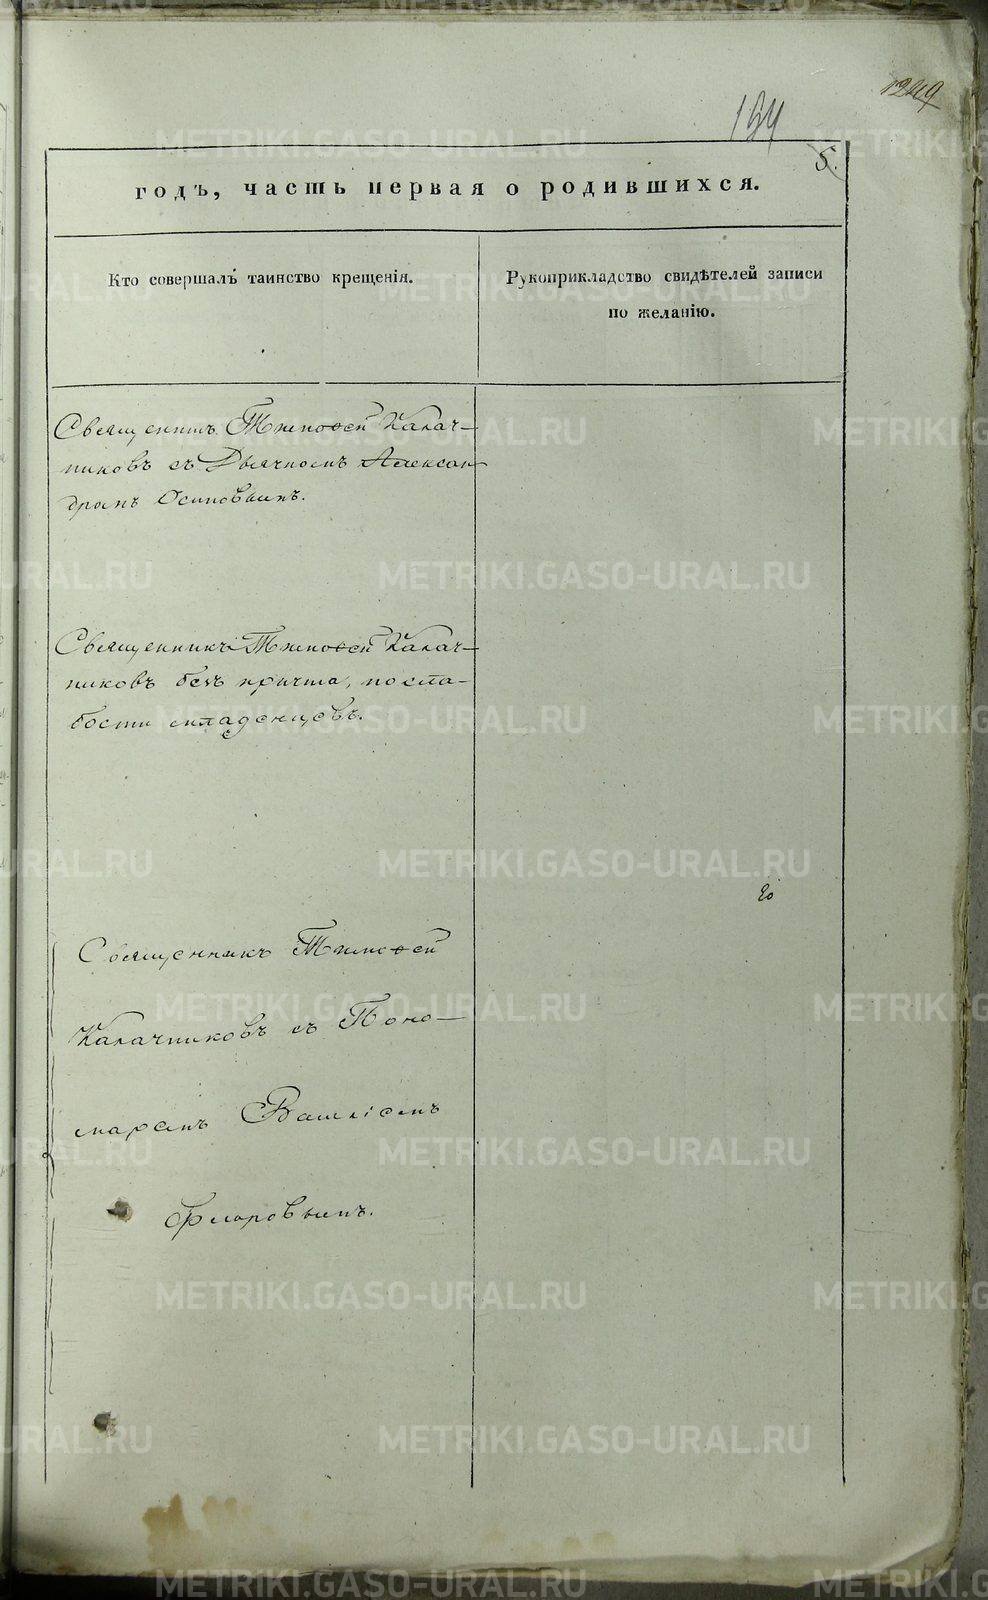 1249
194
5.
годъ, часть первая о родившихся.
Кто совершалъ таинство крещенія.
Рукоприкладство свидѣтелей записи
по желанію.
Священникъ Тимоѳей Калач-
никовъ съ Дьячкомъ Алексан
дромъ Осиповымъ.
Священникъ Тимоѳей Калач-
никовъ безъ причта, по сла-
бости младенцевъ.
Священникъ Тимоѳей
Калачниковъ съ Поно-
маремъ Василіемъ
Флоровымъ.
METRIKI.GASO-URAL.RU